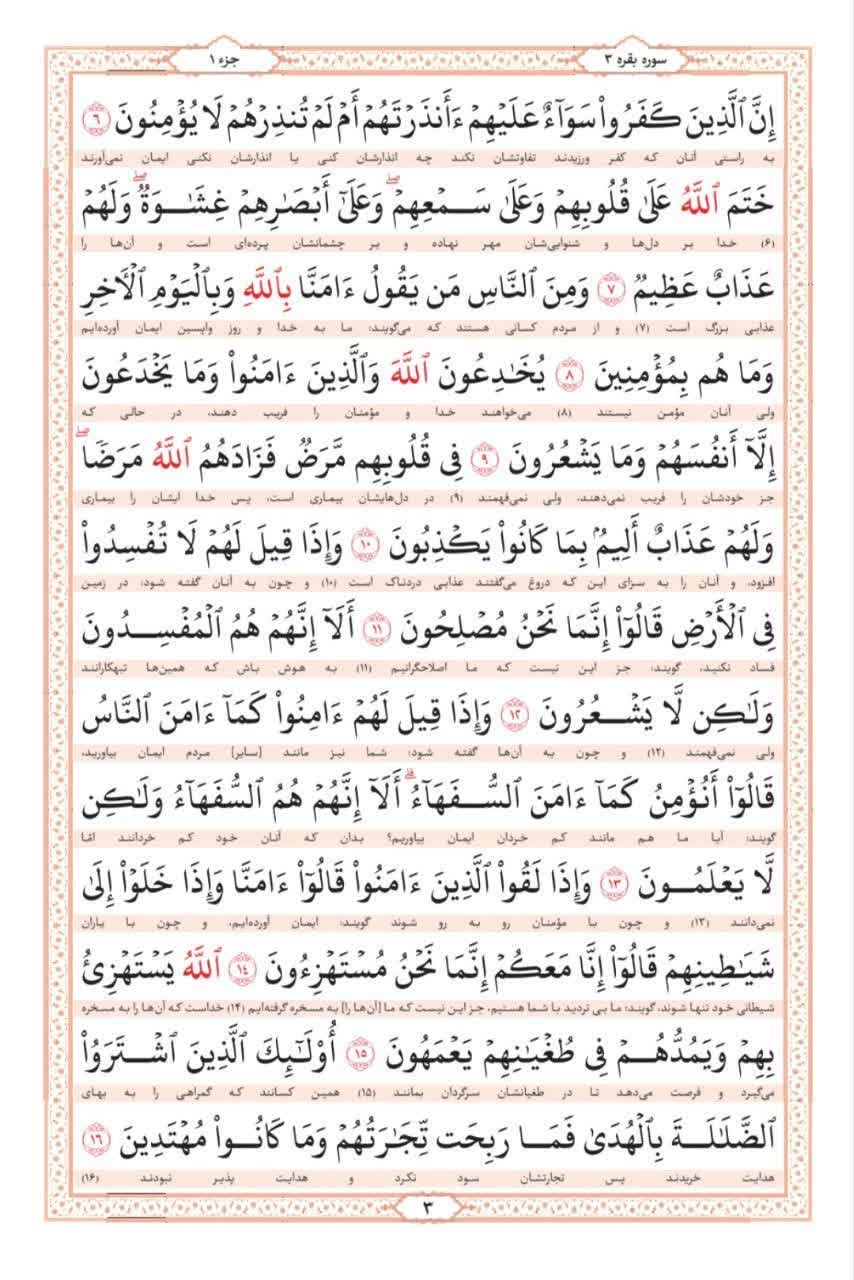 سوره بقره ۳
جزء ۱
إِنَّ ٱلَّذِينَ كَفَرُوا۟ سَوَآءٌ عَلَيْهِمْ ءَأَنذَرْتَهُمْ أَمْ لَمْ تُنذِرْهُمْ لَا يُؤْمِنُونَ ٦
به راستی آنان که کفر ورزیدند تفاوتشان نکند چه انذارشان کنی یا انذارشان نکنی ایمان نمی‌آورند
خَتَمَ ٱللَّهُ عَلَىٰ قُلُوبِهِمْ وَعَلَىٰ سَمْعِهِمْ ۖ وَعَلَىٰٓ أَبْصَٰرِهِمْ غِشَٰوَةٌ ۖ وَلَهُمْ
(۶) خدا بر دل‌ها و شنوایی‌شان مهر نهاده و بر چشمانشان پرده‌ای است و آن‌ها را
عَذَابٌ عَظِيمٌ ٧ وَمِنَ ٱلنَّاسِ مَن يَقُولُ ءَامَنَّا بِٱللَّهِ وَبِٱلْيَوْمِ ٱلْءَاخِرِ
عذابی بزرگ است (۷) و از مردم کسانی هستند که می‌گویند: ما به خدا و روز واپسین ایمان آورده‌ایم
وَمَا هُم بِمُؤْمِنِينَ ٨ يُخَٰدِعُونَ ٱللَّهَ وَٱلَّذِينَ ءَامَنُوا۟ وَمَا يَخْدَعُونَ
ولی آنان مؤمن نیستند (۸) می‌خواهند خدا و مؤمنان را فریب دهند، در حالی که
إِلَّآ أَنفُسَهُمْ وَمَا يَشْعُرُونَ ٩ فِى قُلُوبِهِم مَّرَضٌ فَزَادَهُمُ ٱللَّهُ مَرَضًا ۖ
جز خودشان را فریب نمی‌دهند، ولی نمی‌فهمند (۹) در دل‌هایشان بیماری است، پس خدا ایشان را بیماری
وَلَهُمْ عَذَابٌ أَلِيمٌۢ بِمَا كَانُوا۟ يَكْذِبُونَ ١٠ وَإِذَا قِيلَ لَهُمْ لَا تُفْسِدُوا۟
افزود، و آنان را به سزای این که دروغ می‌گفتند عذابی دردناک است (۱۰) و چون به آنان گفته شود: در زمین
فِى ٱلْأَرْضِ قَالُوٓا۟ إِنَّمَا نَحْنُ مُصْلِحُونَ ١١ أَلَآ إِنَّهُمْ هُمُ ٱلْمُفْسِدُونَ
فساد نکنید، گویند: جز این نیست که ما اصلاحگرانیم (۱۱) به هوش باش که همین‌ها تبهکارانند
وَلَٰكِن لَّا يَشْعُرُونَ ١٢ وَإِذَا قِيلَ لَهُمْ ءَامِنُوا۟ كَمَآ ءَامَنَ ٱلنَّاسُ
ولی نمی‌فهمند (۱۲) و چون به آن‌ها گفته شود: شما نیز مانند [سایر] مردم ایمان بیاورید،
قَالُوٓا۟ أَنُؤْمِنُ كَمَآ ءَامَنَ ٱلسُّفَهَآءُ ۗ أَلَآ إِنَّهُمْ هُمُ ٱلسُّفَهَآءُ وَلَٰكِن
گویند: آیا ما هم مانند کم خردان ایمان بیاوریم؟ بدان که آنان خود کم خردانند امّا
لَّا يَعْلَمُونَ ١٣ وَإِذَا لَقُوا۟ ٱلَّذِينَ ءَامَنُوا۟ قَالُوٓا۟ ءَامَنَّا وَإِذَا خَلَوْا۟ إِلَىٰ
نمی‌دانند (۱۳) و چون با مؤمنان رو به رو شوند گویند: ایمان آورده‌ایم، و چون با یاران
شَيَٰطِينِهِمْ قَالُوٓا۟ إِنَّا مَعَكُمْ إِنَّمَا نَحْنُ مُسْتَهْزِءُونَ ١٤ ٱللَّهُ يَسْتَهْزِئُ
شیطانی خود تنها شوند، گویند: ما بی تردید با شما هستیم، جز این نیست که ما [آن‌ها را] به مسخره گرفته‌ایم (۱۴) خداست که آن‌ها را به مسخره
بِهِمْ وَيَمُدُّهُمْ فِى طُغْيَٰنِهِمْ يَعْمَهُونَ ١٥ أُو۟لَٰٓئِكَ ٱلَّذِينَ ٱشْتَرَوُا۟
می‌گیرد و فرصت می‌دهد تا در طغیانشان سرگردان بمانند (۱۵) همین کسانند که گمراهی را به بهای
ٱلضَّلَٰلَةَ بِٱلْهُدَىٰ فَمَا رَبِحَت تِّجَٰرَتُهُمْ وَمَا كَانُوا۟ مُهْتَدِينَ ١٦
هدایت خریدند پس تجارتشان سود نکرد و هدایت پذیر نبودند (۱۶)
۳